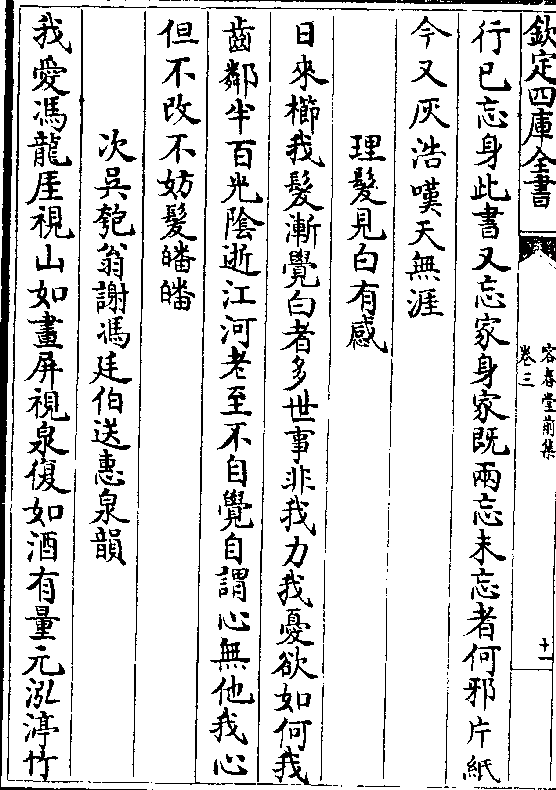 欽定四庫全書
容春堂前集
卷三
十一
行已忘身此書又忘家身家既兩忘未忘者何邪片紙
今又灰浩嘆天無涯
理髮見白有感
日來櫛我髮漸覺白者多世事非我力我憂欲如何我
齒鄰半百光陰逝江河老至不自覺自謂心無他我心
但不改不妨髮皤皤
次吳匏翁謝馮廷伯送惠泉韻
我愛馮龍厓視山如畫屏視泉復如酒有量元泓渟竹